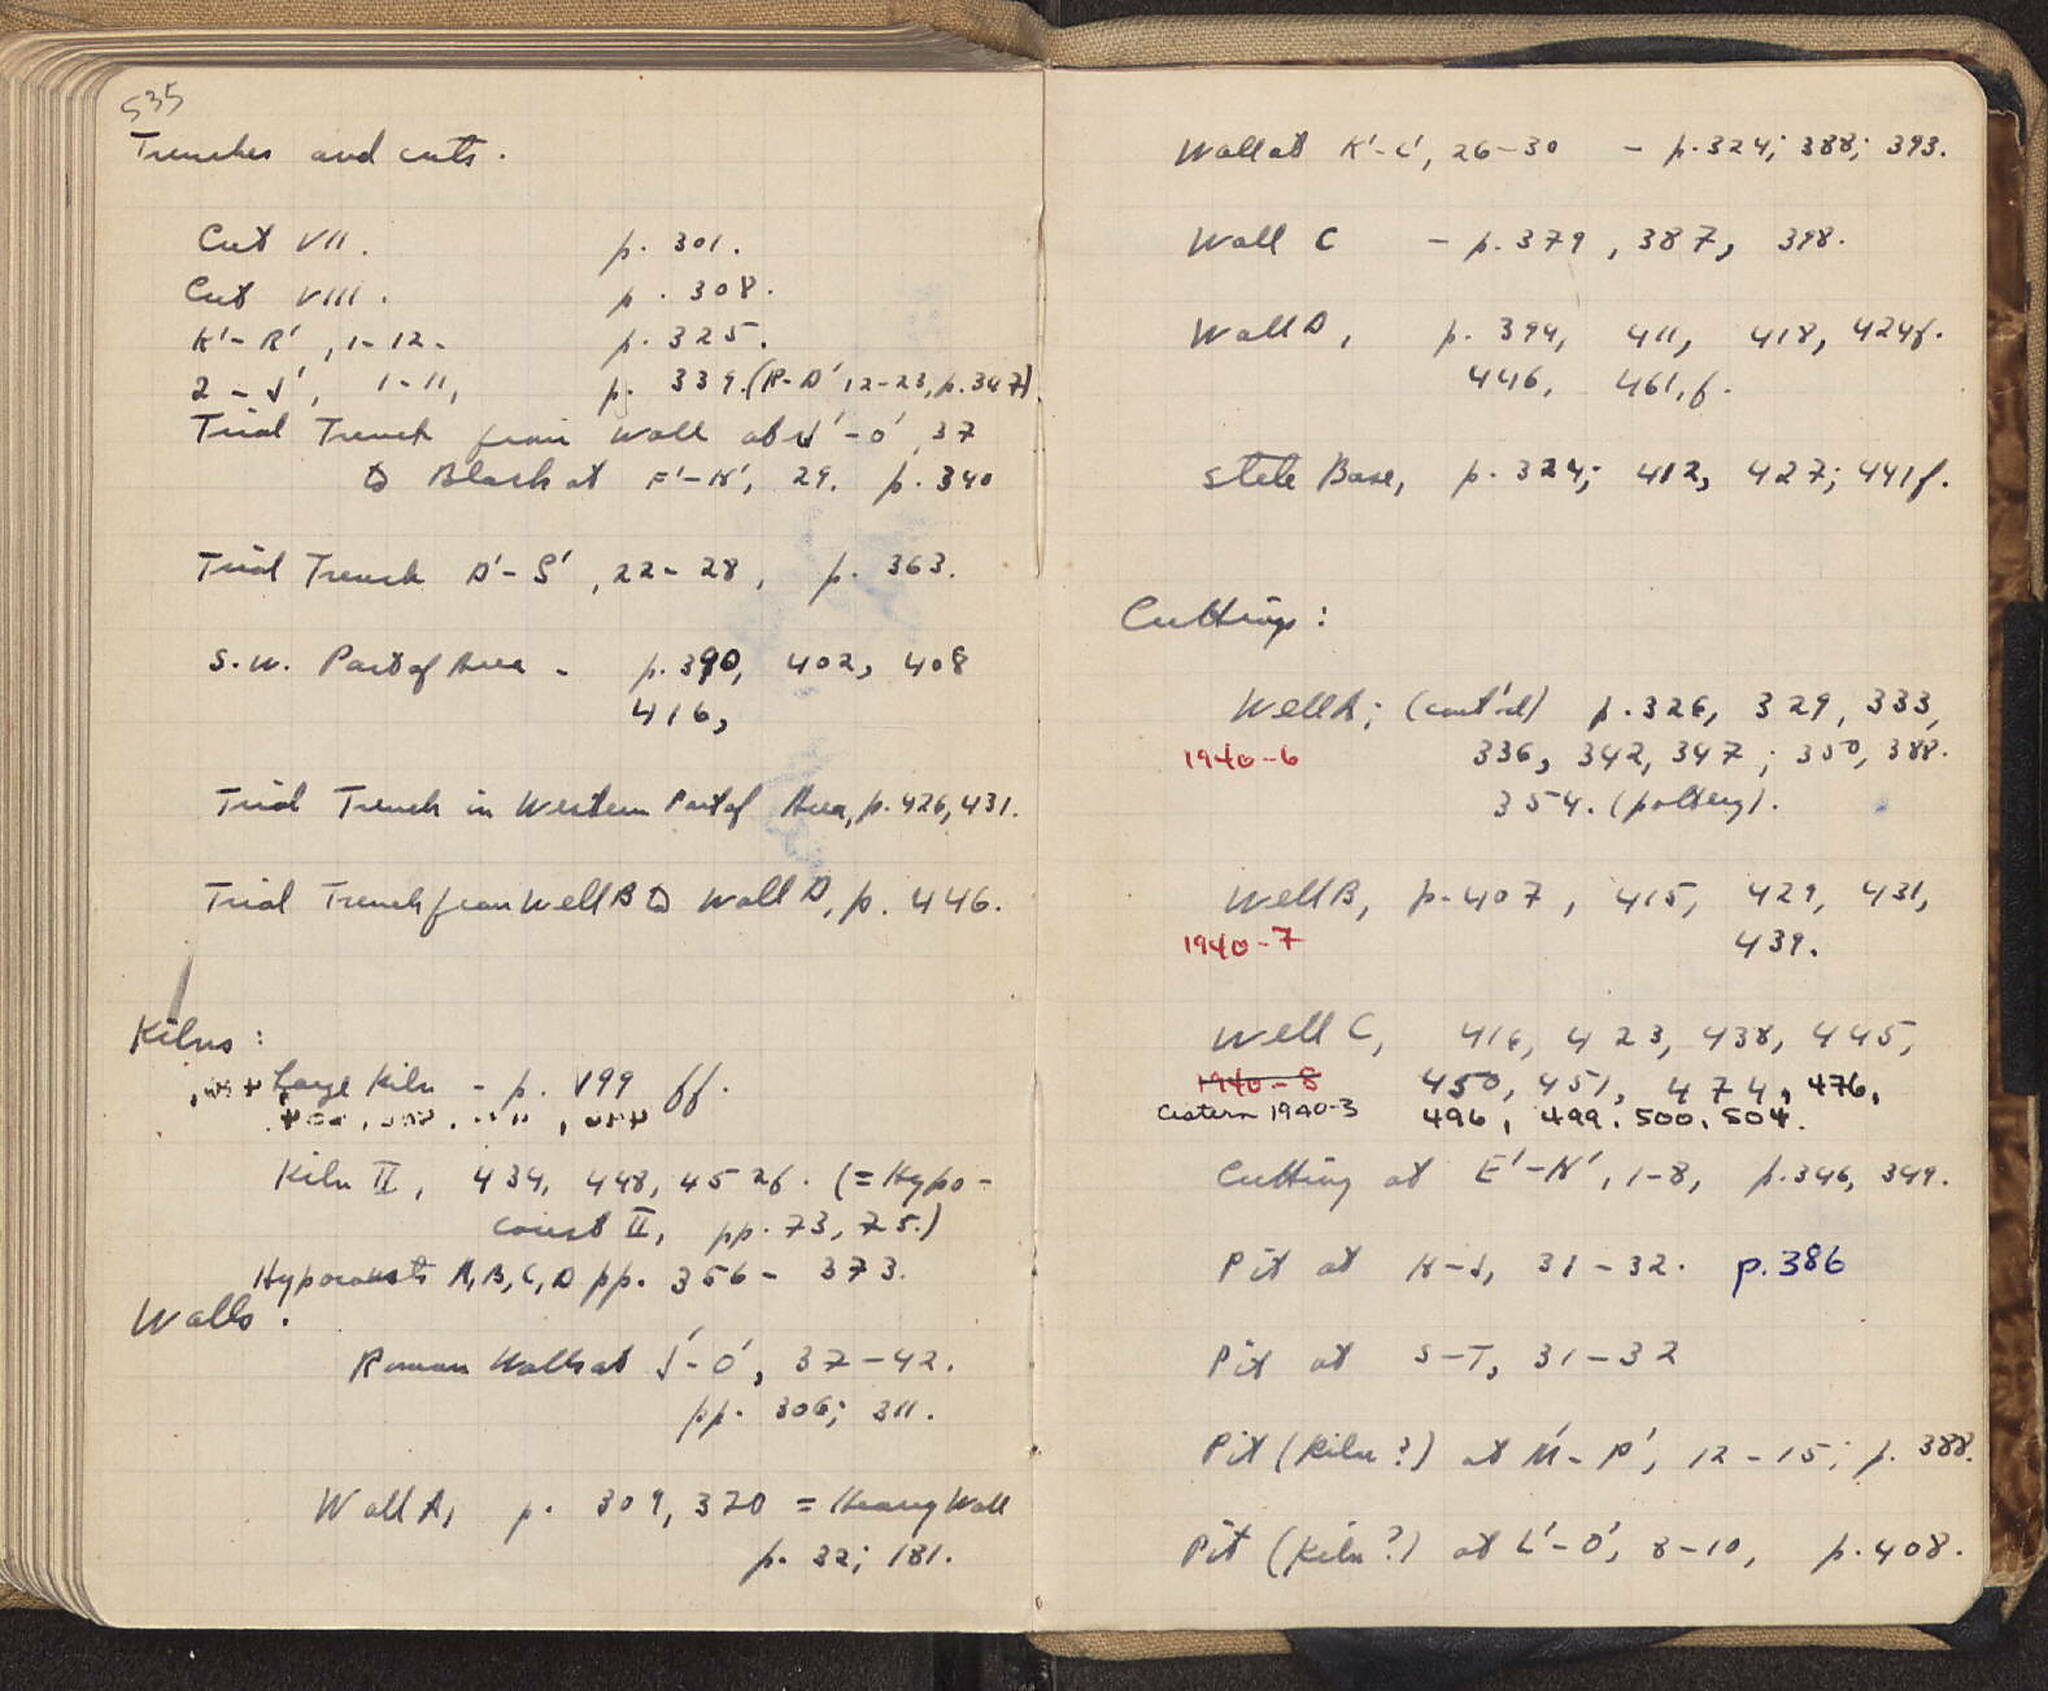 535
Trenches and cuts.
Cut VII. p. 301.
Cut VIII. p. 308.
K'-R', 1-12- p. 325.
2-J', 1-11, p. 339.(R-D' 12-23, p.347)
Trial Trench from Wall at J'-O' 37
to Block at F'-H', 29. p. 340
Trial Trench D'-S', 22-28, p. 363.
S.W. Part of Area - p. 390, 402, 408
416,
Trial Trench in Western Part of Area, p. 426, 431.
Trial Trench from Well B to Wall D, p. 446.
Kilns:
Large Kiln - p. 199 ff.
Kiln II, 434, 448, 452f. (= Hypo-
caust II, pp. 73, 75.)
Hypocausts A, B, C, D pp. 356- 373.
Walls.
Roman Walls at J'-O', 37-42.
pp. 306; 311.
Wall A, p. 309, 320 = Heavy Wall
p. 32; 181.
Wall at K'-L', 26-30 - p. 324; 388; 393.
Wall C - p. 379, 387, 398.
Wall D, p. 394, 411, 418, 424f.
446, 461,f.
Stele Base, p. 324; 412, 427; 441f.
Cuttings:
Well A; (cont'd) p. 326, 329, 333,
1940-6 336, 342, 347; 350, 388.
354. (pottery).
Well B, p. 407, 415, 429, 431,
1940-7 439.
Well C, 416, 423, 438, 445,
1940-8 450, 451, 474, 476,
Cistern 1940-3 496, 499, 500, 504.
Cutting at E'-H', 1-8, p. 346, 349.
Pit at H-J, 31-32. p. 386
Pit at S-T, 31-32
Pit (Kiln?) at M'-P', 12-15; p. 388.
Pit (Kiln?) at L'-O', 8-10, p. 408.